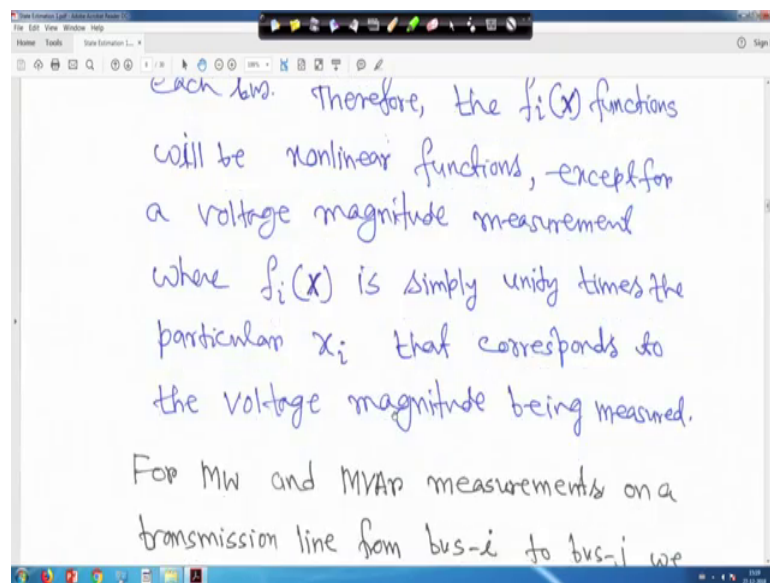 State Estimation 1.pdf - Adobe Acrobat Reader DC
File Edit View Window Help
Home Tools State Estimation 1... × Sign
each bus. Therefore, the fi(x) functions
will be nonlinear functions, except for
a voltage magnitude measurement
where fi(x) is simply unity times the
particular xi that corresponds to
the voltage magnitude being measured.
For MW and MVAR measurements on a
transmission line from bus-i to bus-j we